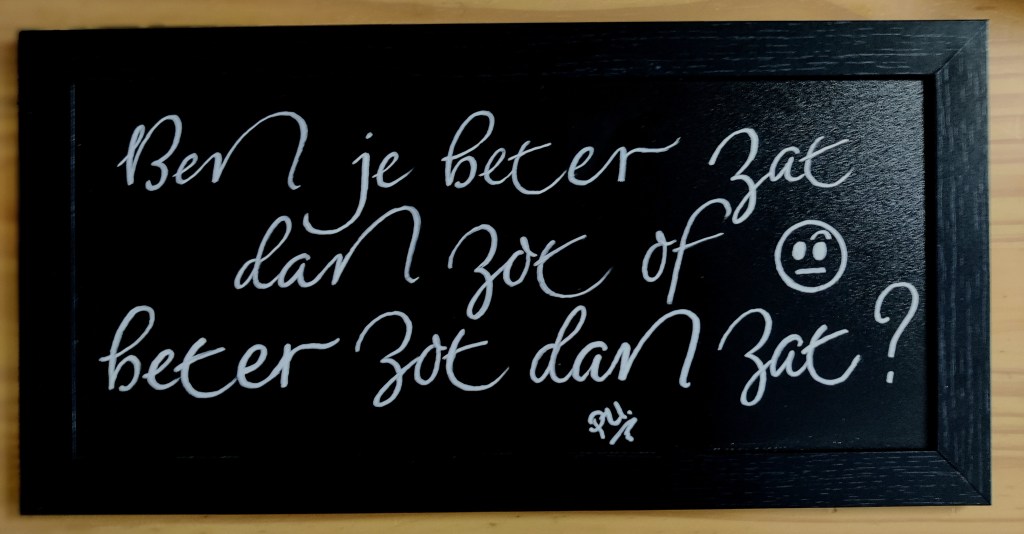 Ben je beter zat
dan zot of
beter zot dan zat?